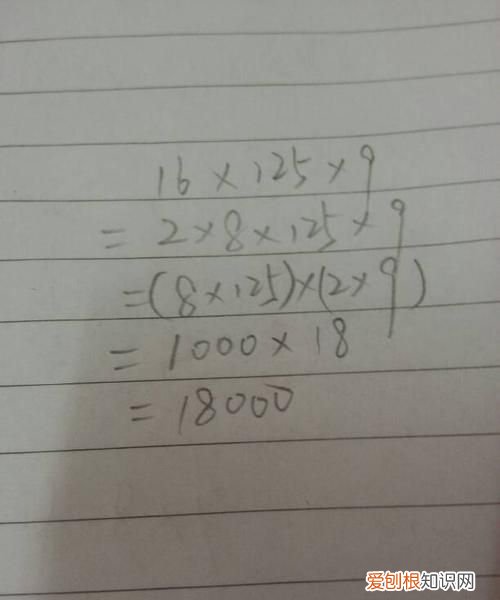 16×125×9
=2×8×125×9
=(8×125)×(2×9)
=1000×18
=18000
爱刨根知识网